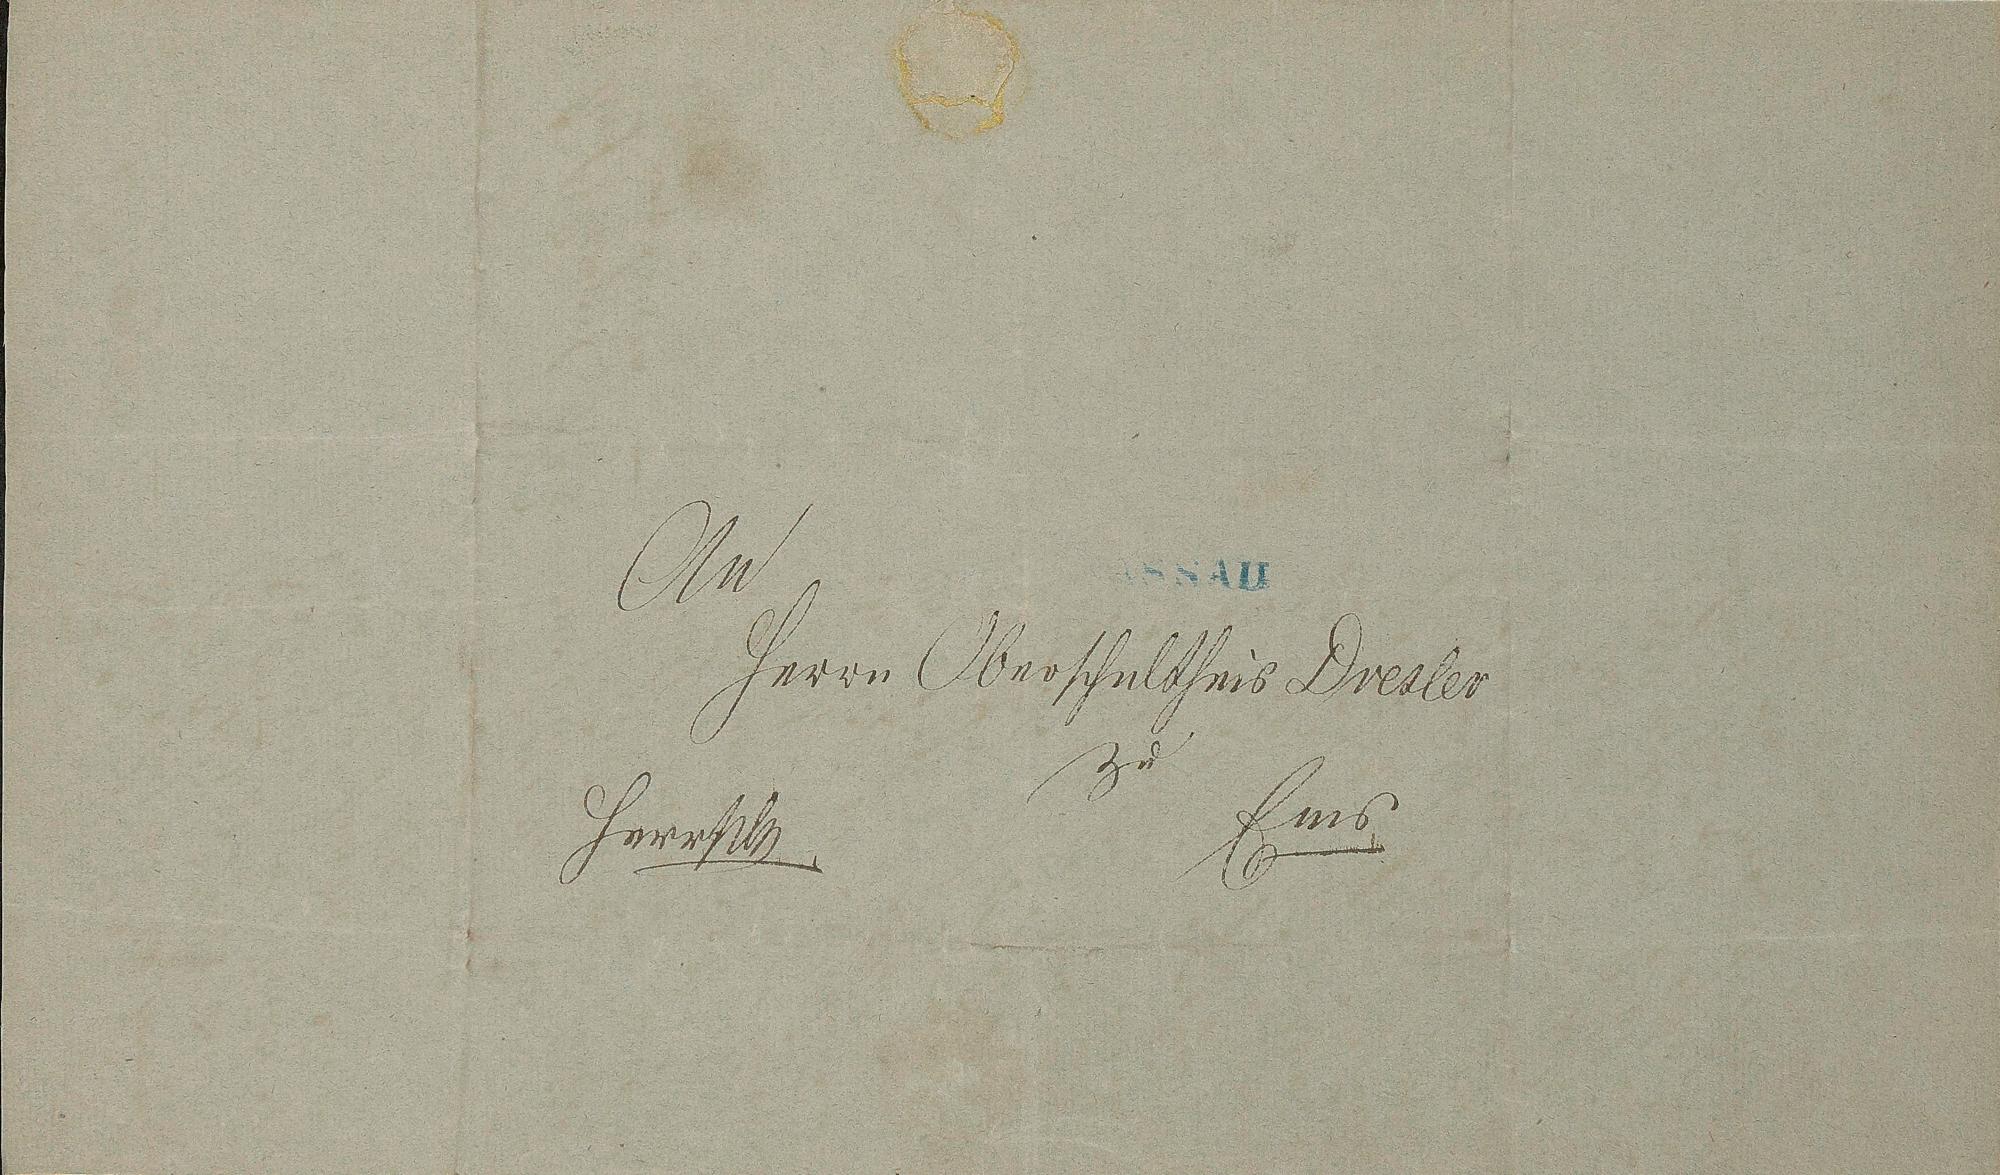 An
ASSAU
Herrn Oberschultheis Dresler
zu
Ems